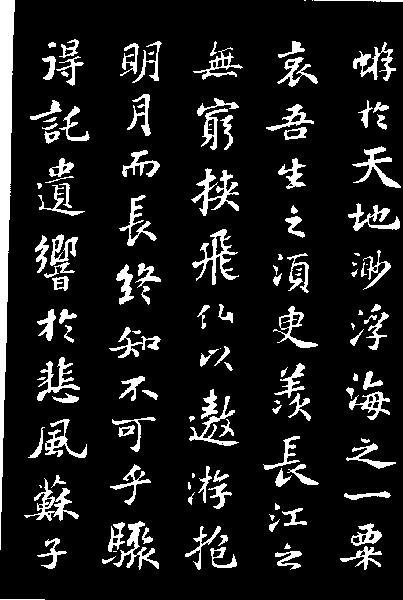 蝣於天地渺浮海之一粟
哀吾生之須臾羨長江之
無窮挾飛仙以遨游抱
明月而長終知不可乎驟
得託遺響於悲風蘇子